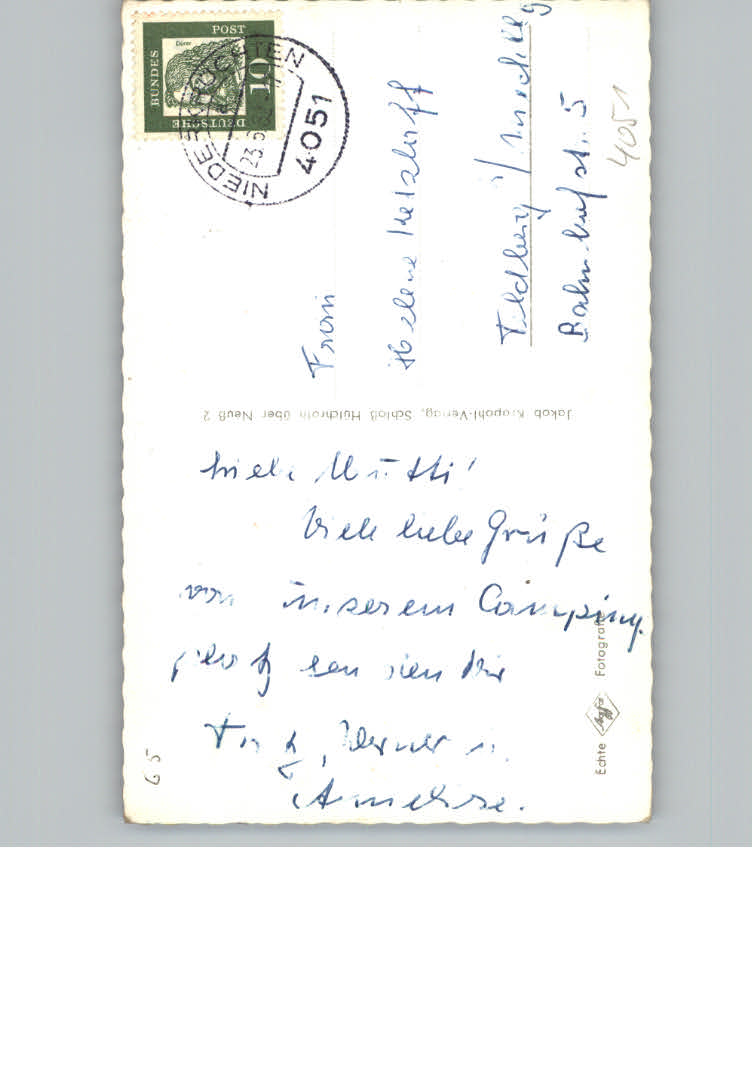 DEUTSCHE
BUNDES
POST
Dürer
10
NIEDERKRÜCHTEN
23.
4051
Frau
Helene
Feldberg
Bahnhofstr. 5
4051
Jakob Krapohl-Verlag, Schloß Hülchrath über Neuß 2
Liebe Mutti!
Viele liebe Grüße
von unserem Camping
platz senden Dir
Werner u.
Anneliese.
Echte Agfa Fotografie
65